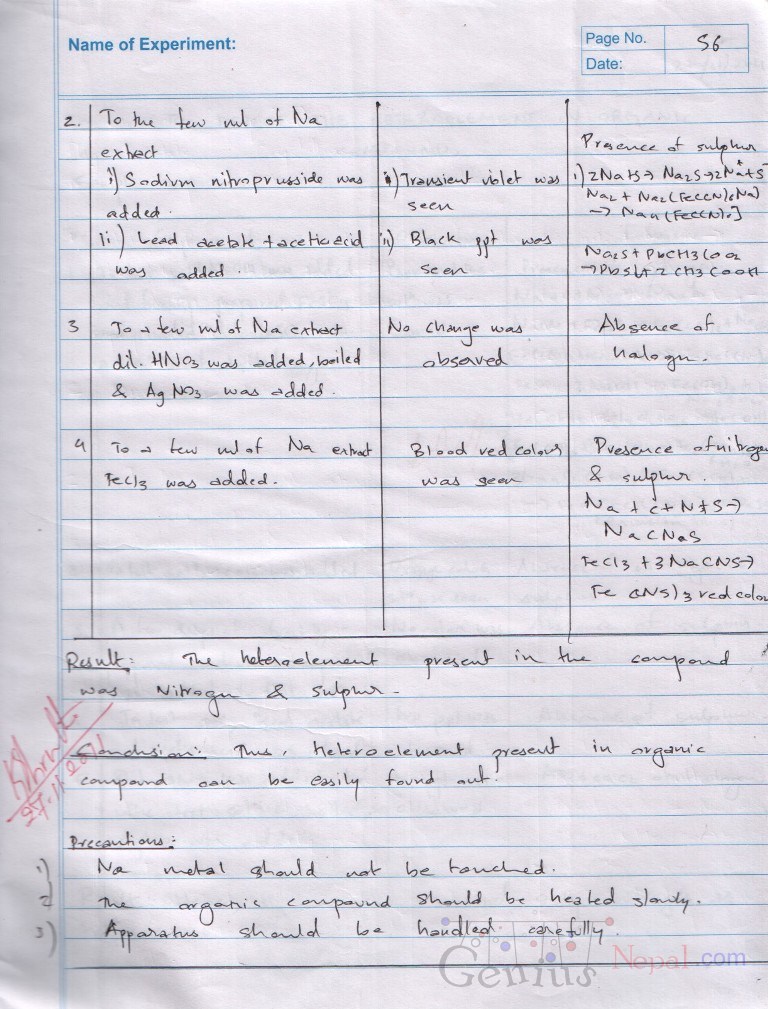 Name of Experiment:
Page No. 56
Date:
2. To the few ml of Na
extract
i) Sodium nitroprusside was
added.
ii) Lead acetate + acetic acid
was added.
ii) Transient violet was
seen
ii) Black ppt was
seen
Presence of sulphur
i) 2Na+S→ Na2S→2Na+ + S
Na2 + Na2(Fe(CN)6Na)
→ Na4(Fe(CN)6]
Na2S + PbCH3COO2
→PbS↓+ 2 CH3COOH
3 To a few ml of Na extract
dil. HNO3 was added, boiled
& AgNO3 was added.
No change was
observed
Absence of
halogn.
4 To a few ml of Na extract
FeCl3 was added.
Blood red colour
was seen
Presence of nitroge
& sulphur.
Na + C + N + S →
NaCNaS
FeCl3 + 3NaCNS→
Fe CNS)3 red colou
Result: The heteroelement present in the compound
was Nitrogn & sulphur-
Conclusion: Thus, heteroelement present in organic
compound can be easily found out.
27.11.2071
Precautions:
1) Na metal should not be touched.
2 The organic compound should be heated slowly.
3) Apparatus should be handled carefully.
Genius Nepal.com